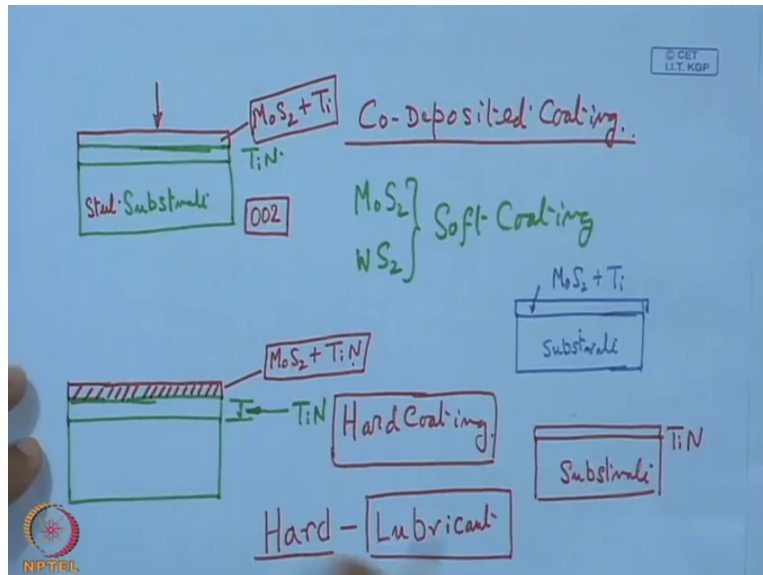 © CET
I.I.T. KGP
MoS2 + Ti
Co-Deposited Coating.
TiN.
Steel. Substrate
002
MoS2
WS2
Soft Coating
MoS2 + Ti
Substrate
MoS2 + TiN
TiN
Hard Coating.
TiN
Substrate
Hard - Lubricant
NPTEL